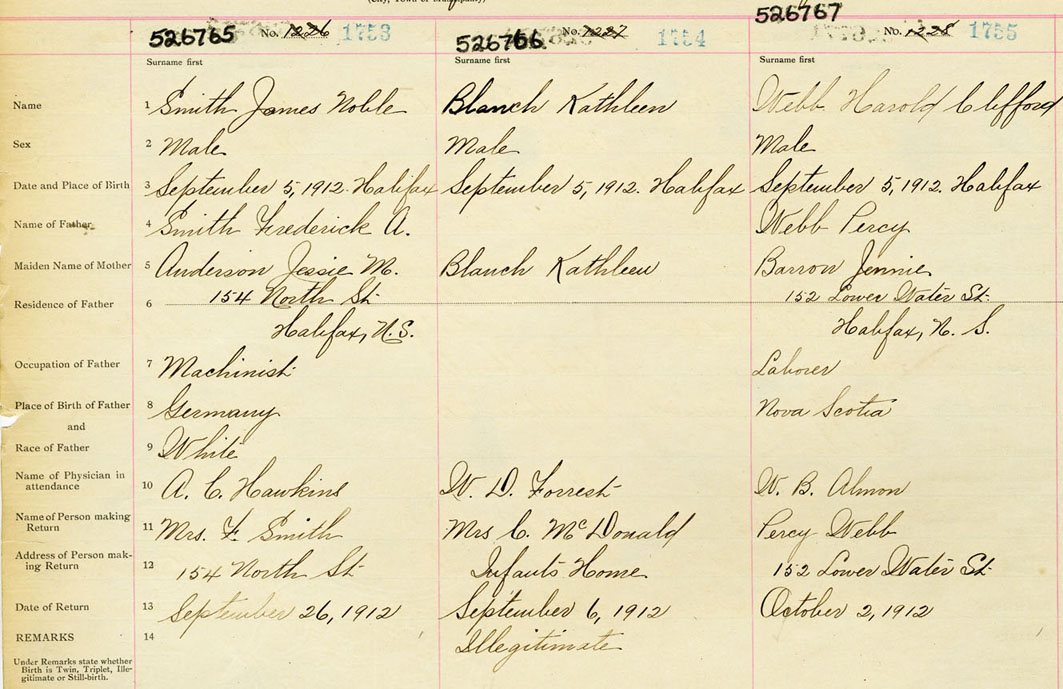 (City, Town or Municipality)
526765 No. 1226 1753
526766 No. 1227 1754
526767 No. 1228 1755
Surname first Surname first Surname first
Name 1 Smith James Noble Blanch Kathleen Webb Harold Clifford
Sex 2 Male Male Male
Date and Place of Birth 3 September 5, 1912. Halifax September 5, 1912. Halifax September 5, 1912. Halifax
Name of Father 4 Smith Frederick A. Webb Percy
Maiden Name of Mother 5 Anderson Jessie M. Blanch Kathleen Barron Jennie
Residence of Father 6 154 North St. 152 Lower Water St.
Halifax, N.S. Halifax, N. S.
Occupation of Father 7 Machinist Laborer
Place of Birth of Father 8 Germany Nova Scotia
and
Race of Father 9 White
Name of Physician in
attendance 10 A. C. Hawkins W. D. Forrest W. B. Almon
Name of Person making
Return 11 Mrs. F. Smith Mrs C. McDonald Percy Webb
Address of Person mak-
ing Return 12 154 North St Infants Home 152 Lower Water St.
Date of Return 13 September 26, 1912 September 6, 1912 October 2, 1912
REMARKS 14 Illegitimate
Under Remarks state whether
Birth is Twin, Triplet, Ille-
gitimate or Still-birth.